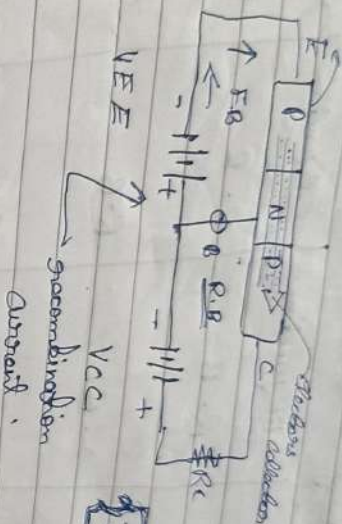 E
P N P
Electrons collection
C
FB
B
R.B
- + - +
RC
VEE
VCC
recombination
current.